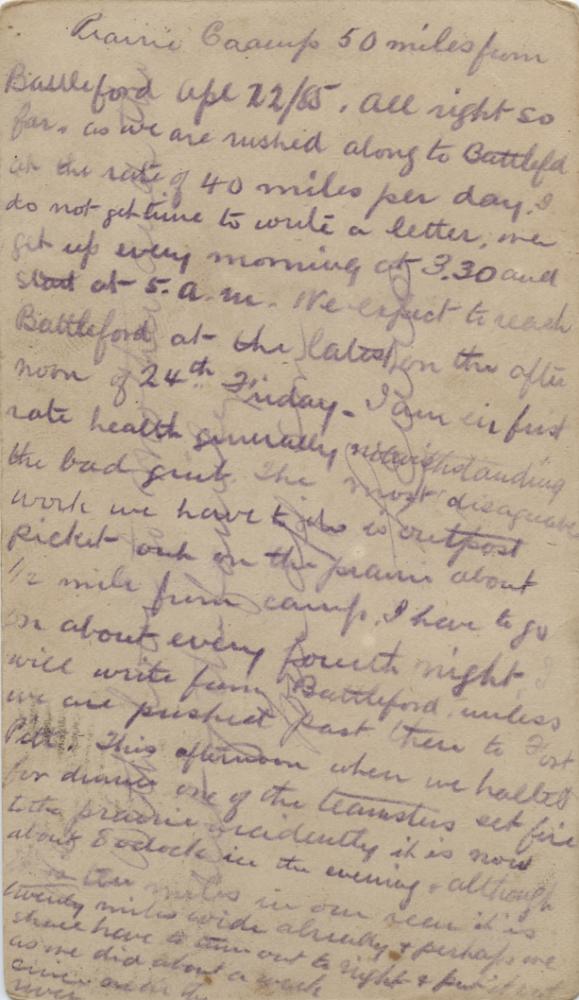 Prairie Caacmp 50 miles from
Battleford Apl 22/85. All right so
far. as we are rushed along to Battlefd
at the rate of 40 miles per day. I
do not get time to write a letter, we
get up every morning at 3.30 and
start at 5. a.m. We expect to reach
Battleford at the latest on the after
noon of 24th Friday - I am in first
rate health generally notwithstanding
the bad grub. The most disagreeable
work we have to do is outpost
picket out on the prairie about
1/2 mile from camp. I have to go
on about every fourth night. I
will write from Battleford unless
we are pushed past there to Fort
Pitt. This afternoon when we halted
for dinner one of the teamsters set fire
to the prairie accidently it is now
about 8 oclock in the evening & although
ten miles in our rear it is
twenty miles wide already & perhaps we
shall have to turn out to night & put it out
as we did about a week
since on the
river